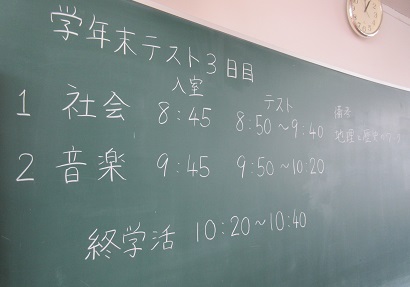 学年末テスト3日目
入室 テスト 備考
1 社会 8:45 8:50～9:40
2 音楽 9:45 9:50～10:20
終学活 10:20～10:40